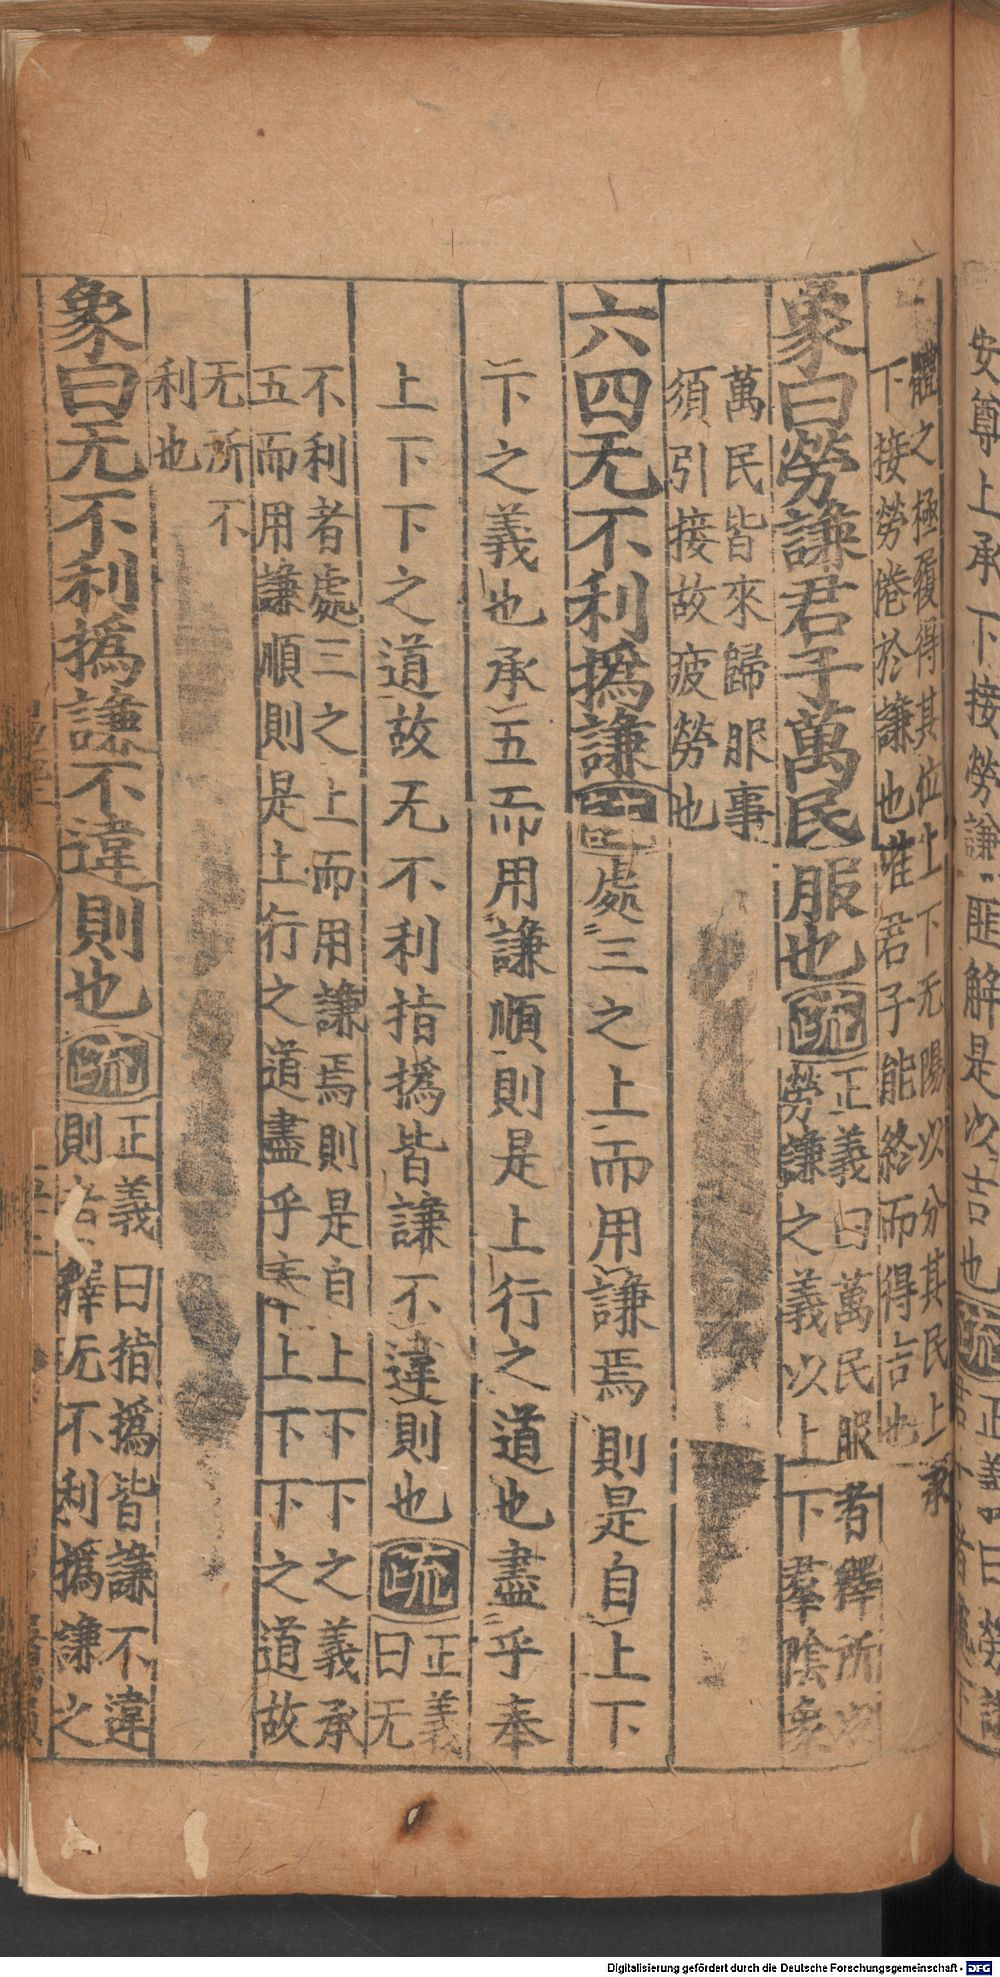 安尊上承下接勞謙匪解是以吉也疏
正義曰勞謙
君子者
體之極履得其位上下无陽以分其民上承
下接勞倦於謙也唯君子能終而得吉也
象曰勞謙君子萬民服也疏
正義曰萬民服者釋所以
勞謙之義以上下羣陰象
萬民皆來歸服事
須引接故疲勞也
六四无不利撝謙
處三之上而用謙焉則是自上下
下之義也承五而用謙順則是上行之道也盡乎奉
上下下之道故无不利指撝皆謙不違則也疏
正義
曰无
不利者處三之上而用謙焉則是自上下下之義承
五而用謙順則是上行之道盡乎奉上下下之道故
无所不
利也
象曰无不利撝謙不違則也疏
正義曰指撝皆謙不違
則者釋无不利撝謙之
Digitalisierung gefördert durch die Deutsche Forschungsgemeinschaft - DFG